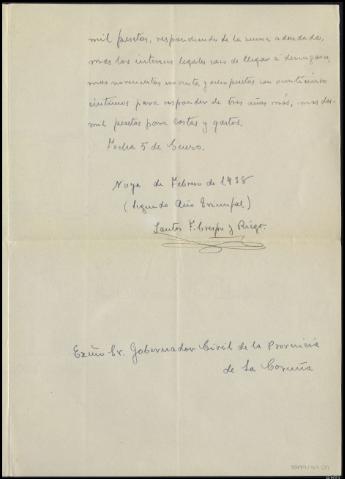 mil pesetas, respondiendo de la suma adeudada,
mas los intereses legales caso de llegar a
mas novecientos noventa y pesetas con
céntimos para responder de tres años más, mas dos
mil pesetas para costas y gastos.
Fecha 5 de Enero.
Noya de Febrero de 1938
(Segundo Año Triunfal)
Santos F. Crespo y Riego.
Exmo Sr. Gobernador Civil de la Provincia
de La Coruña